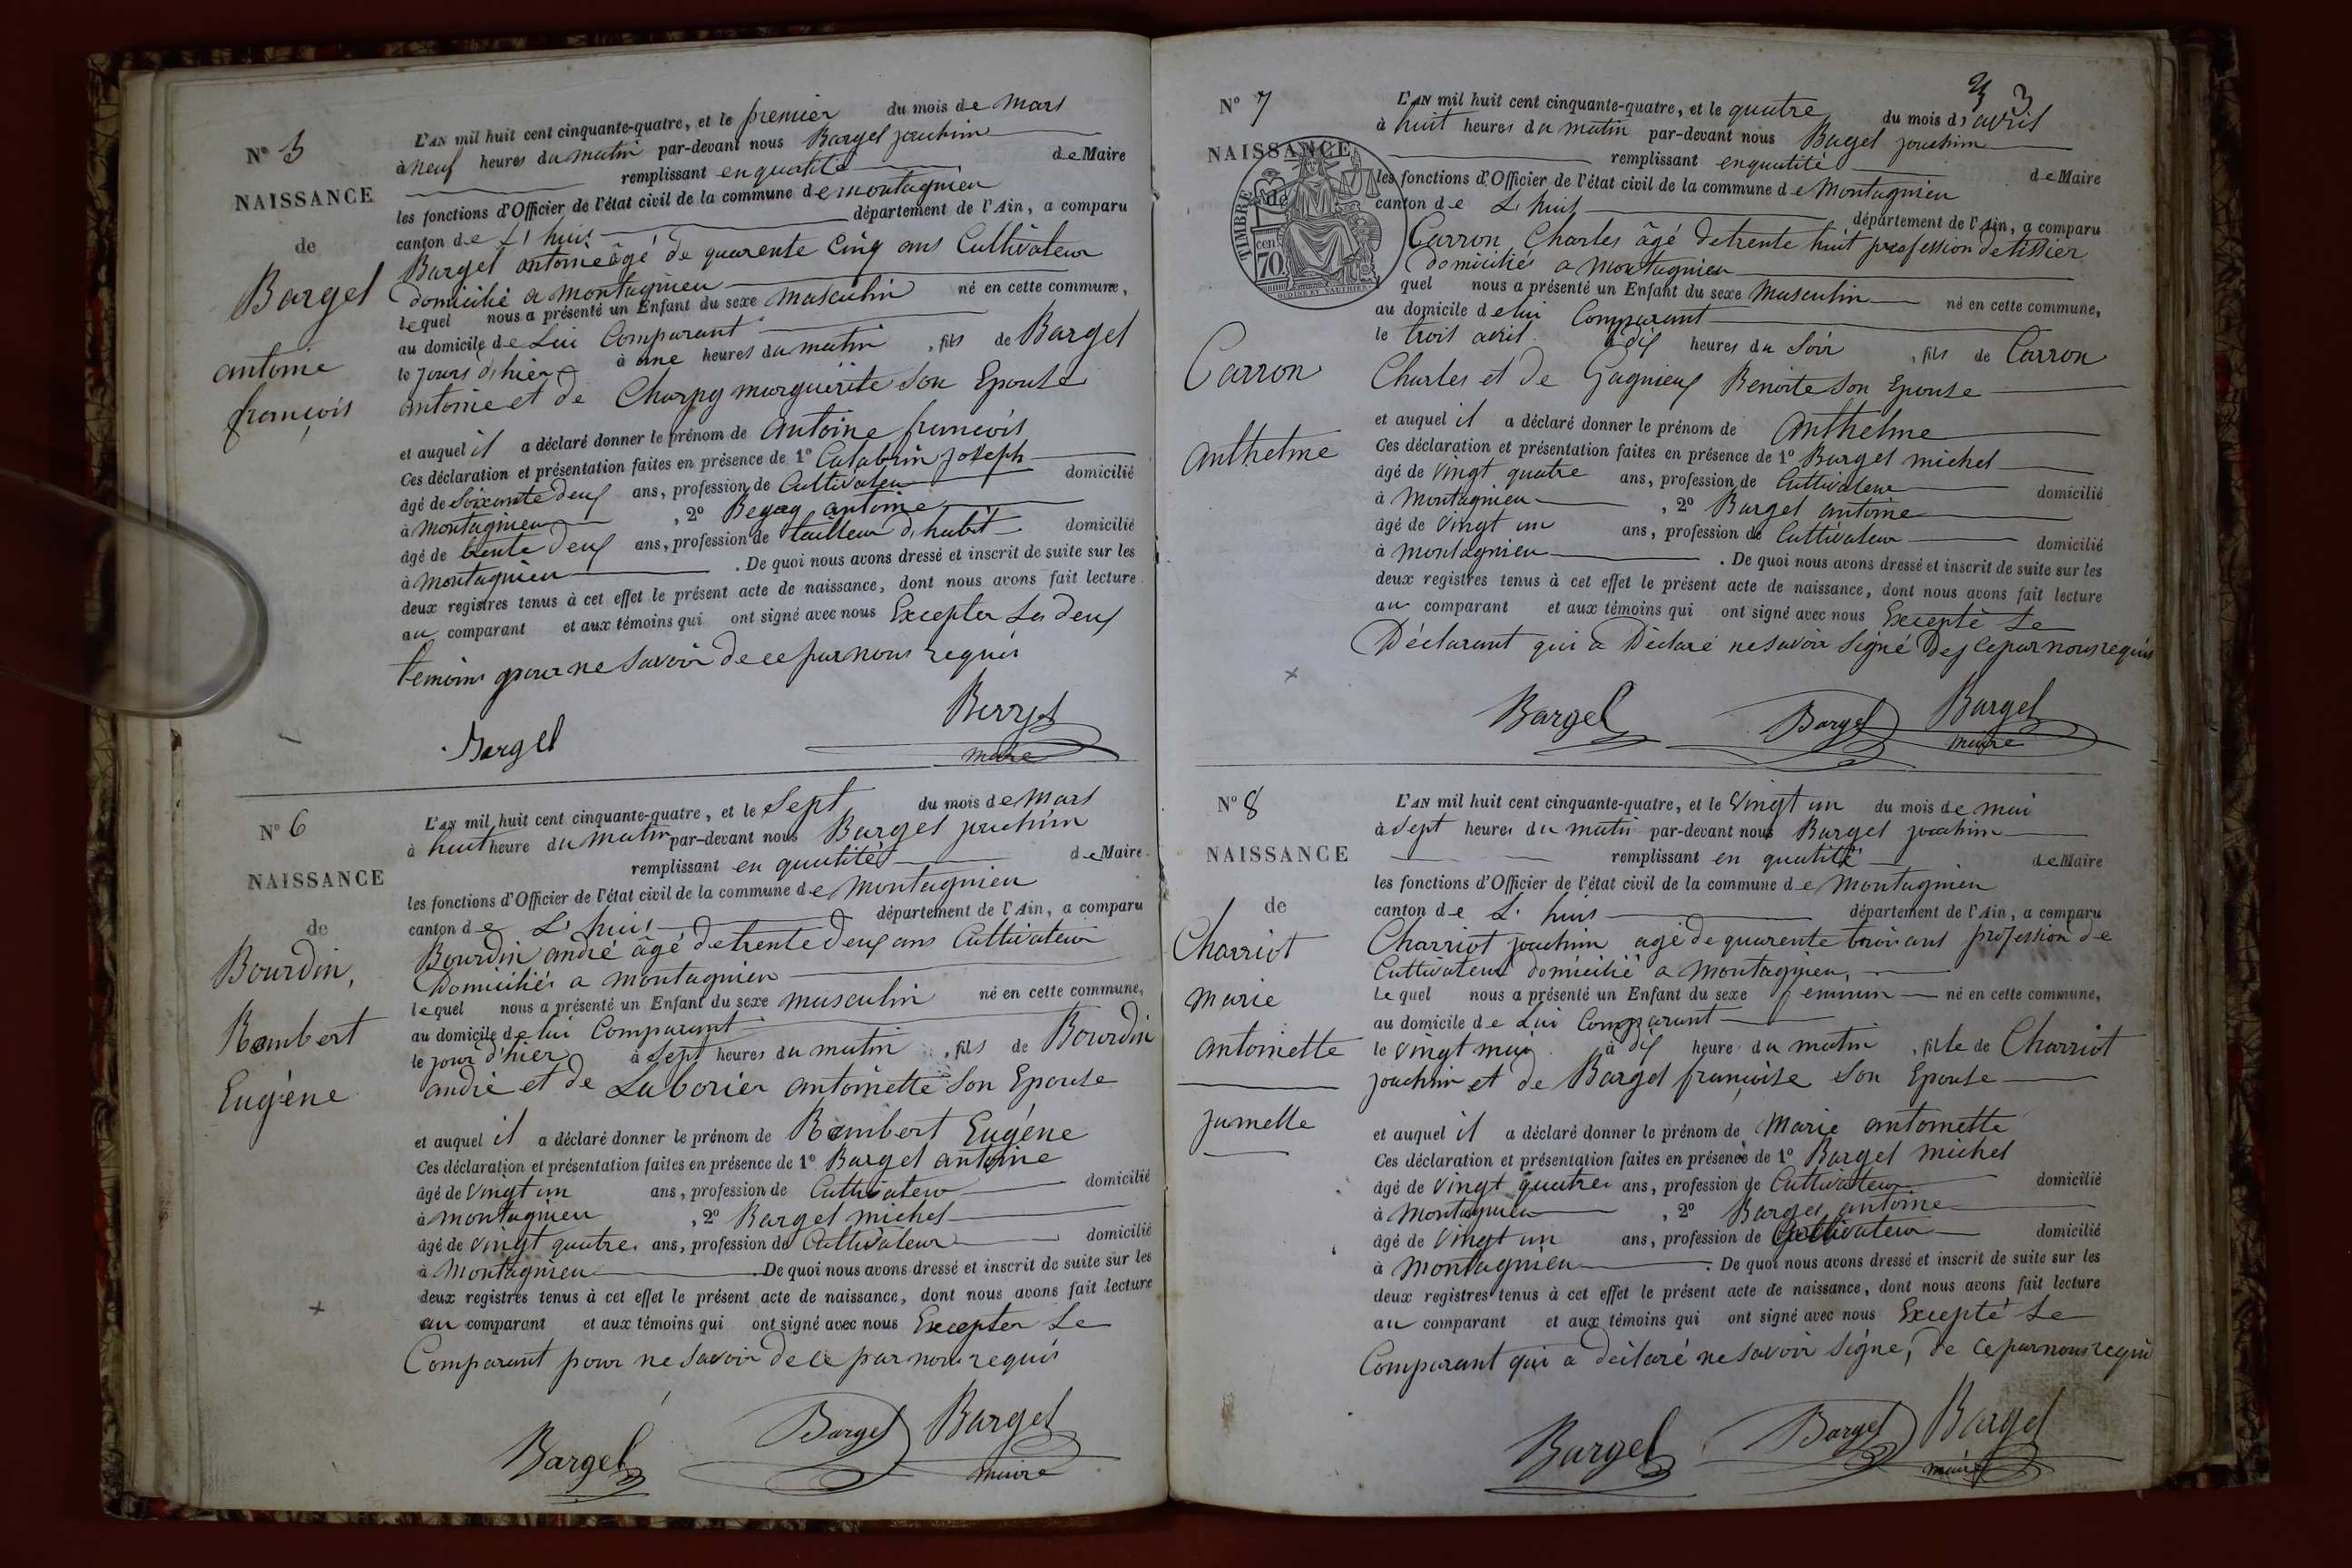 N° 5
NAISSANCE
de
Bargel
antoine
françois
L'AN mil huit cent cinquante-quatre, et le premier du mois de mars
à neuf heures du matin par-devant nous Bargel joachim
remplissant enqualité de Maire
les fonctions d'Officier de l'état civil de la commune de montagnieu
canton de L'huis département de l'Ain, a comparu
Bargel antoine âgé de quarente cinq ans Cultivateur
domicilié a montagnieu
lequel nous a présenté un Enfant du sexe masculin né en cette commune,
au domicile de Lui Comparant
le jours d'hier à une heures du matin , fils de Bargel
antoine et de Charpy marguerite son Epouse
et auquel il a déclaré donner le prénom de antoine francois
Ces déclaration et présentation faites en présence de 1° Calabrin joseph
âgé de soixante deux ans, profession de Cultivateur domicilié
à montagnieu , 2° Begag antoine
âgé de trente deux ans, profession de tailleur d'habit domicilié
à montagnieu . De quoi nous avons dressé et inscrit de suite sur les
deux registres tenus à cet effet le présent acte de naissance, dont nous avons fait lecture
au comparant et aux témoins qui ont signé avec nous Excepter Les deux
temoins pour ne savoir de ce par nous requis
Bargel Bargel
maire
N° 6
NAISSANCE
de
Bourdin,
Rambert
Eugène
L'AN mil huit cent cinquante-quatre, et le sept du mois de mars
à huit heure du matin par-devant nous Bargel joachim
remplissant en qualités de Maire
les fonctions d'Officier de l'état civil de la commune de montagnieu
canton de L'huis département de l'Ain, a comparu
Bourdin andré âgé de trente deux ans Cultivateur
Domiciliés a montagnieu
lequel nous a présenté un Enfant du sexe masculin né en cette commune,
au domicile de lui Comparant
le jour d'hier à sept heures du matin , fils de Bourdin
andré et de Laborier antoinette son Epouse
et auquel il a déclaré donner le prénom de Rambert Eugéne
Ces déclaration et présentation faites en présence de 1° Bargel antoine
âgé de vingt un ans, profession de Cultivateur domicilié
à montagnieu , 2° Bargel michel
âgé de vingt quatre ans, profession de Cultivateur domicilié
à Montagnieu . De quoi nous avons dressé et inscrit de suite sur les
deux registres tenus à cet effet le présent acte de naissance, dont nous avons fait lecture
au comparant et aux témoins qui ont signé avec nous Excepter Le
Comparant pour ne savoir de ce par nous requis
Bargel Bargel Bargel
maire
3
N° 7
NAISSANCE
de
TIMBRE
cen 70
Carron
anthelme
L'AN mil huit cent cinquante-quatre, et le quatre du mois d'avril
à huit heures du matin par-devant nous Bargel joachim
remplissant enqualité de Maire
les fonctions d'Officier de l'état civil de la commune de Montagnieu
canton de L'huis département de l'Ain, a comparu
Carron Charles âgé detrente huit profession de tissier
domiciliés a montagnieu
quel nous a présenté un Enfant du sexe Masculin né en cette commune,
au domicile de lui Comparant
le trois avril à dix heures du soir , fils de Carron
Charles et de Gagnieux Benoite son Epouse
et auquel il a déclaré donner le prénom de anthelme
Ces déclaration et présentation faites en présence de 1° Bargel michel
âgé de vingt quatre ans, profession de Cultivateur domicilié
à Montagnieu , 2° Bargel antoine
âgé de vingt un ans, profession de Cultivateur domicilié
à montagnieu . De quoi nous avons dressé et inscrit de suite sur les
deux registres tenus à cet effet le présent acte de naissance, dont nous avons fait lecture
au comparant et aux témoins qui ont signé avec nous Excepté Le
Déclarant qui a Déclaré ne savoir signé ce par nous requis
Bargel Bargel Bargel
maire
N° 8
NAISSANCE
de
Charriot
marie
antoinette
jumelle
L'AN mil huit cent cinquante-quatre, et le vingt un du mois de mai
à sept heures du matin par-devant nous Bargel joachim
remplissant en qualité de Maire
les fonctions d'Officier de l'état civil de la commune de Montagnieu
canton de L'huis département de l'Ain, a comparu
Charriot joachim agé de quarente trois ans profession de
Cultivateur domicilié a montagnieu,
Lequel nous a présenté un Enfant du sexe feminin né en cette commune,
au domicile de Lui Comparant
le vingt mai à dix heure du matin , fille de Charriot
joachim et de Bargel françoise son Epouse
et auquel il a déclaré donner le prénom de Marie antoinette
Ces déclaration et présentation faites en présence de 1° Bargel michel
âgé de vingt quatre ans, profession de Cultivateur domicilié
à Montagnieu , 2° Bargel antoine
âgé de vingt un ans, profession de Cultivateur domicilié
à Montagnieu . De quoi nous avons dressé et inscrit de suite sur les
deux registres tenus à cet effet le présent acte de naissance, dont nous avons fait lecture
au comparant et aux témoins qui ont signé avec nous Excepté Le
Comparant qui a déclaré ne savoir signe, de ce par nous requis
Bargel Bargel Bargel
maire